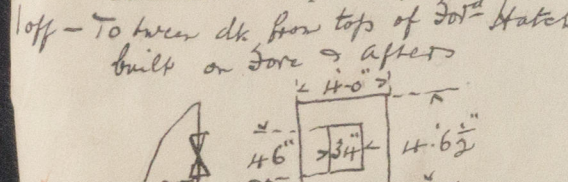 1 off - To tween dk from top of Ford Hatch
built on Fore & Afters
4'-0"
46" 34" 4'-6½"